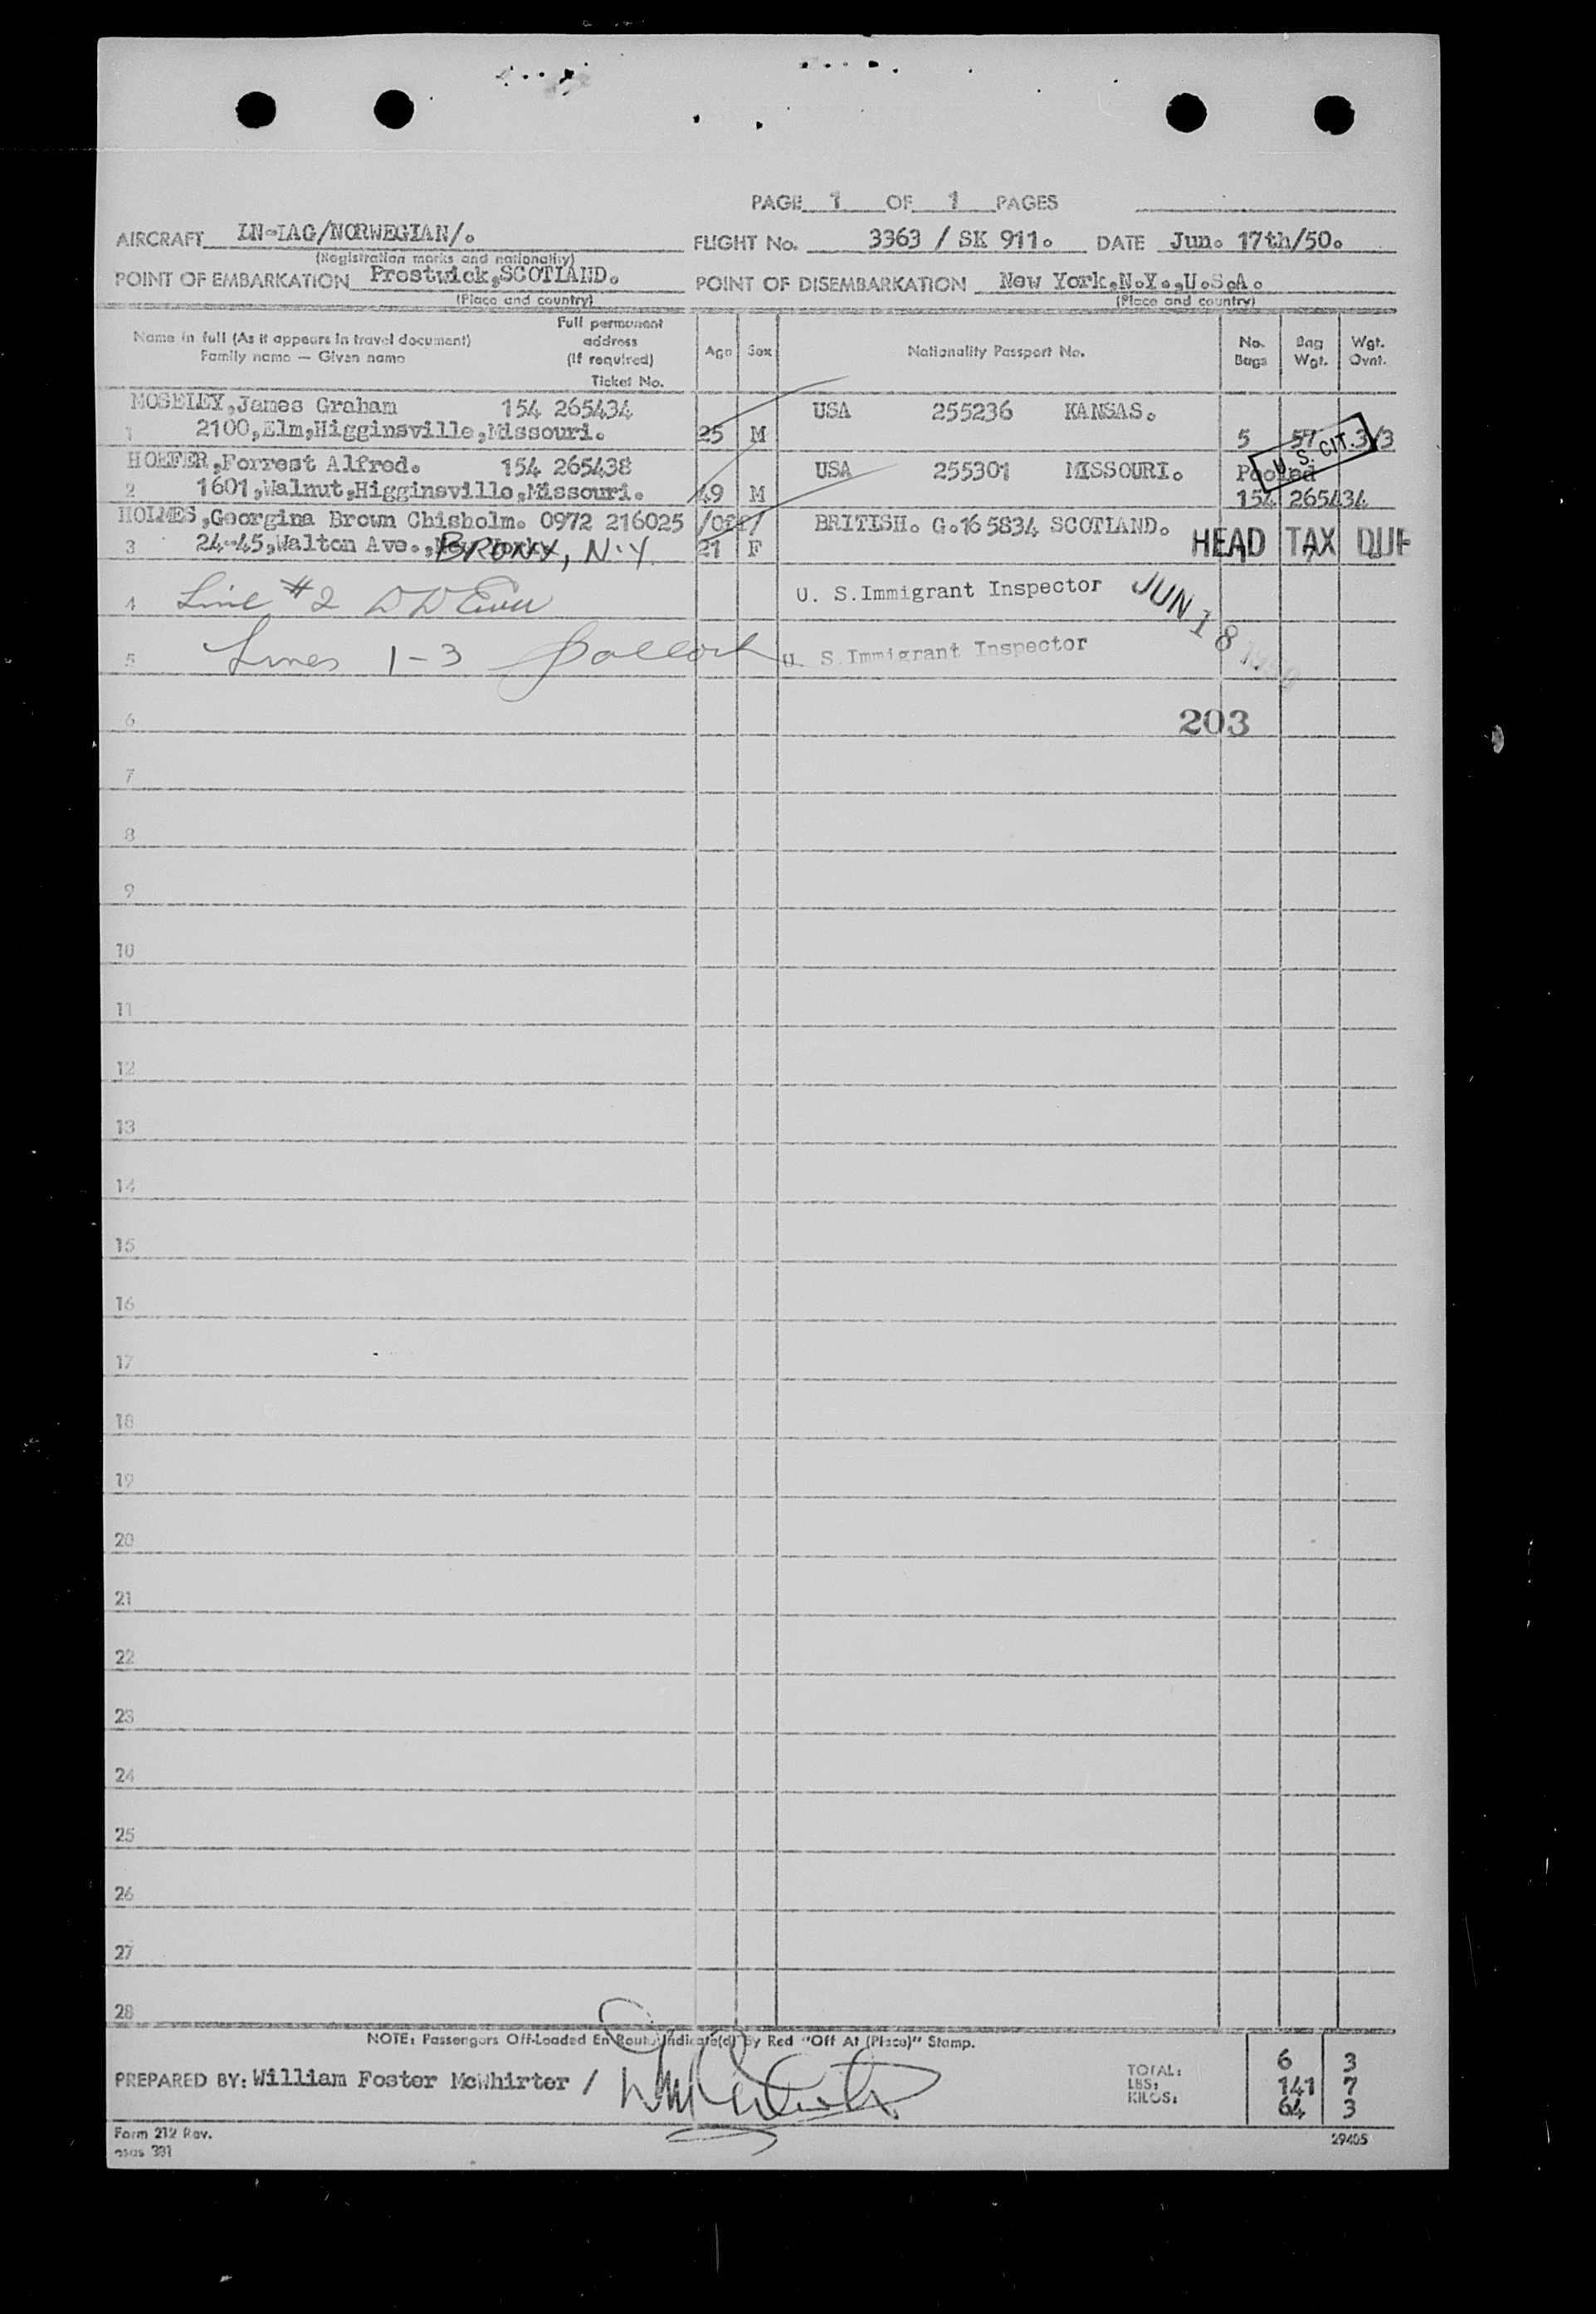 PAGE 1 OF 1 PAGES
AIRCRAFT LN-IAG/NORWEGIAN/. FLIGHT No. 3363 / SK 911. DATE Jun. 17th/50.
(Registration marks and nationality)
POINT OF EMBARKATION Prestwick,SCOTLAND. POINT OF DISEMBARKATION New York,N.Y.,U.S.A.
(Place and country) (Place and country)
Name in full (As it appears in travel document) Family name — Given name Full permanent address (If required) Ticket No. Age Sex Nationality Passport No. No. Bags Bag Wgt. Wgt. Ovnt.
MOSELEY,James Graham 154 265434 USA 255236 KANSAS.
1 2100,Elm,Higginsville,Missouri. 25 M 5 57 3/3
U. S. CIT.
HOEFER,Forrest Alfred. 154 265438 USA 255301 MISSOURI. Pooled
2 1601,Walnut,Higginsville,Missouri. 49 M 154 265434
HOLMES,Georgina Brown Chisholm. 0972 216025 /Off/ BRITISH. G.165834 SCOTLAND.
HEAD TAX DUE
3 24-45,Walton Ave., BRONX, N.Y. 21 F
4 Line #2 U. S.Immigrant Inspector JUN 18 1950
5 Lines 1-3 U. S.Immigrant Inspector
6 203
7
8
9
10
11
12
13
14
15
16
17
18
19
20
21
22
23
24
25
26
27
28
NOTE: Passengers Off-Loaded En Route Indicate(d) By Red "Off At (Place)" Stamp.
PREPARED BY: William Foster McWhirter /
TOTAL: 6 3
LBS: 141 7
KILOS: 64 3
Form 212 Rev. 29405
331